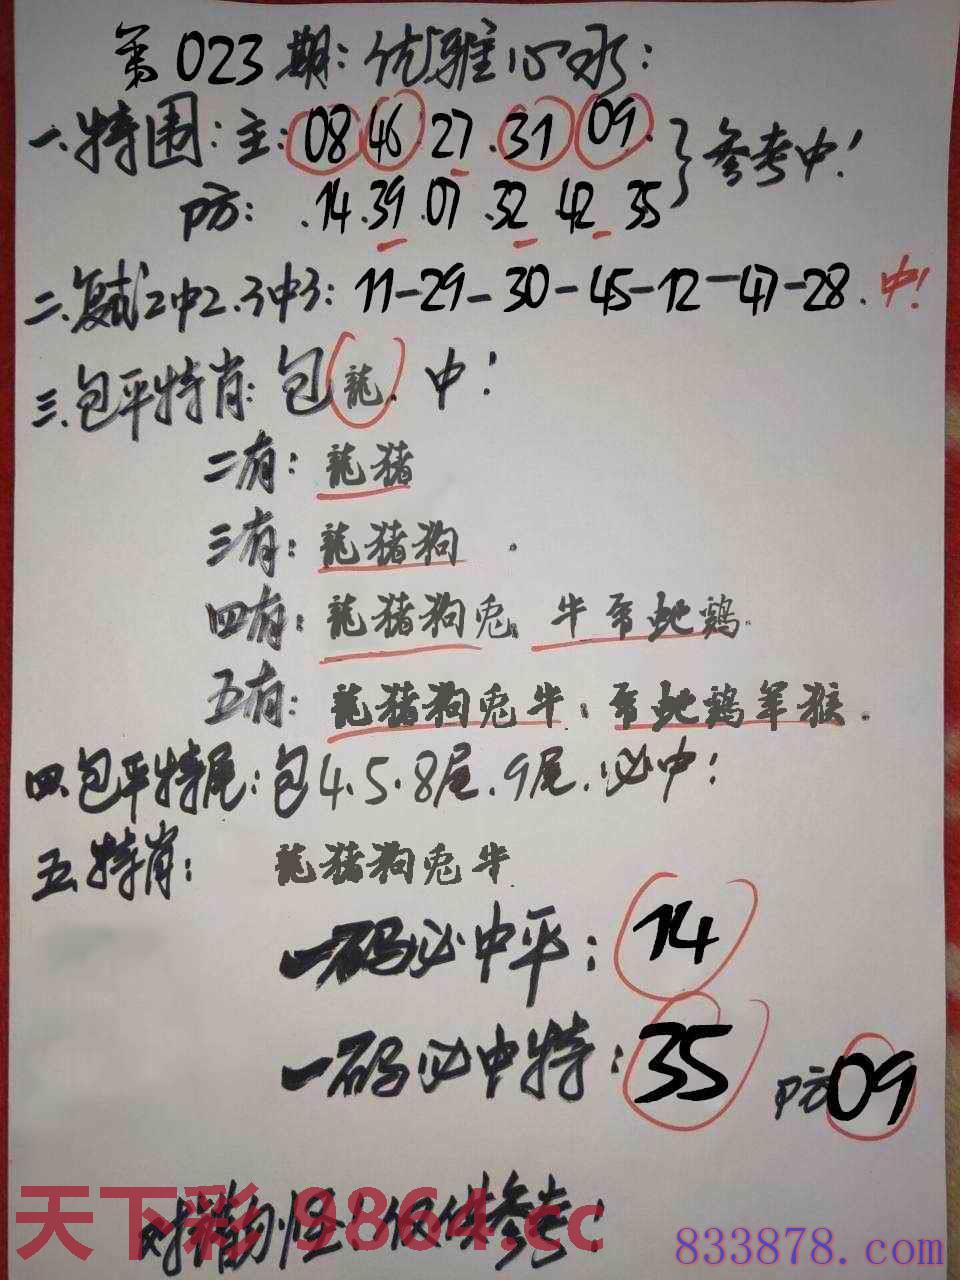 第023期:优雅心水:
一.特围:主:08 46.27.31 09.
防:.14.39.07.32.42 35
}参考中!
二.复试2中2.3中3:11-29-30-45-12-47-28.中!
三.包平特肖:包龍.中!
二有:龍猪
三有:龍猪狗.
四有:龍猪狗兎.牛帝虵鶏.
五有:龍猪狗兎牛:帝虵鶏羊猴.
四.包平特尾:包4.5.8尾.9尾.必中!
五.特肖:龍猪狗兎牛.
一码必中平:14
一码必中特:35 防09
对猜勿怪!仅供参考!
天下彩 9864.cc
833878.com